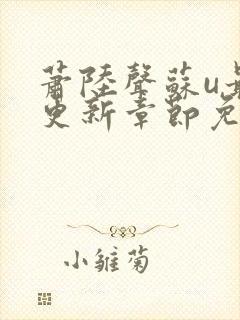 萧陸聲蘇u
更新章節免
小雛菊